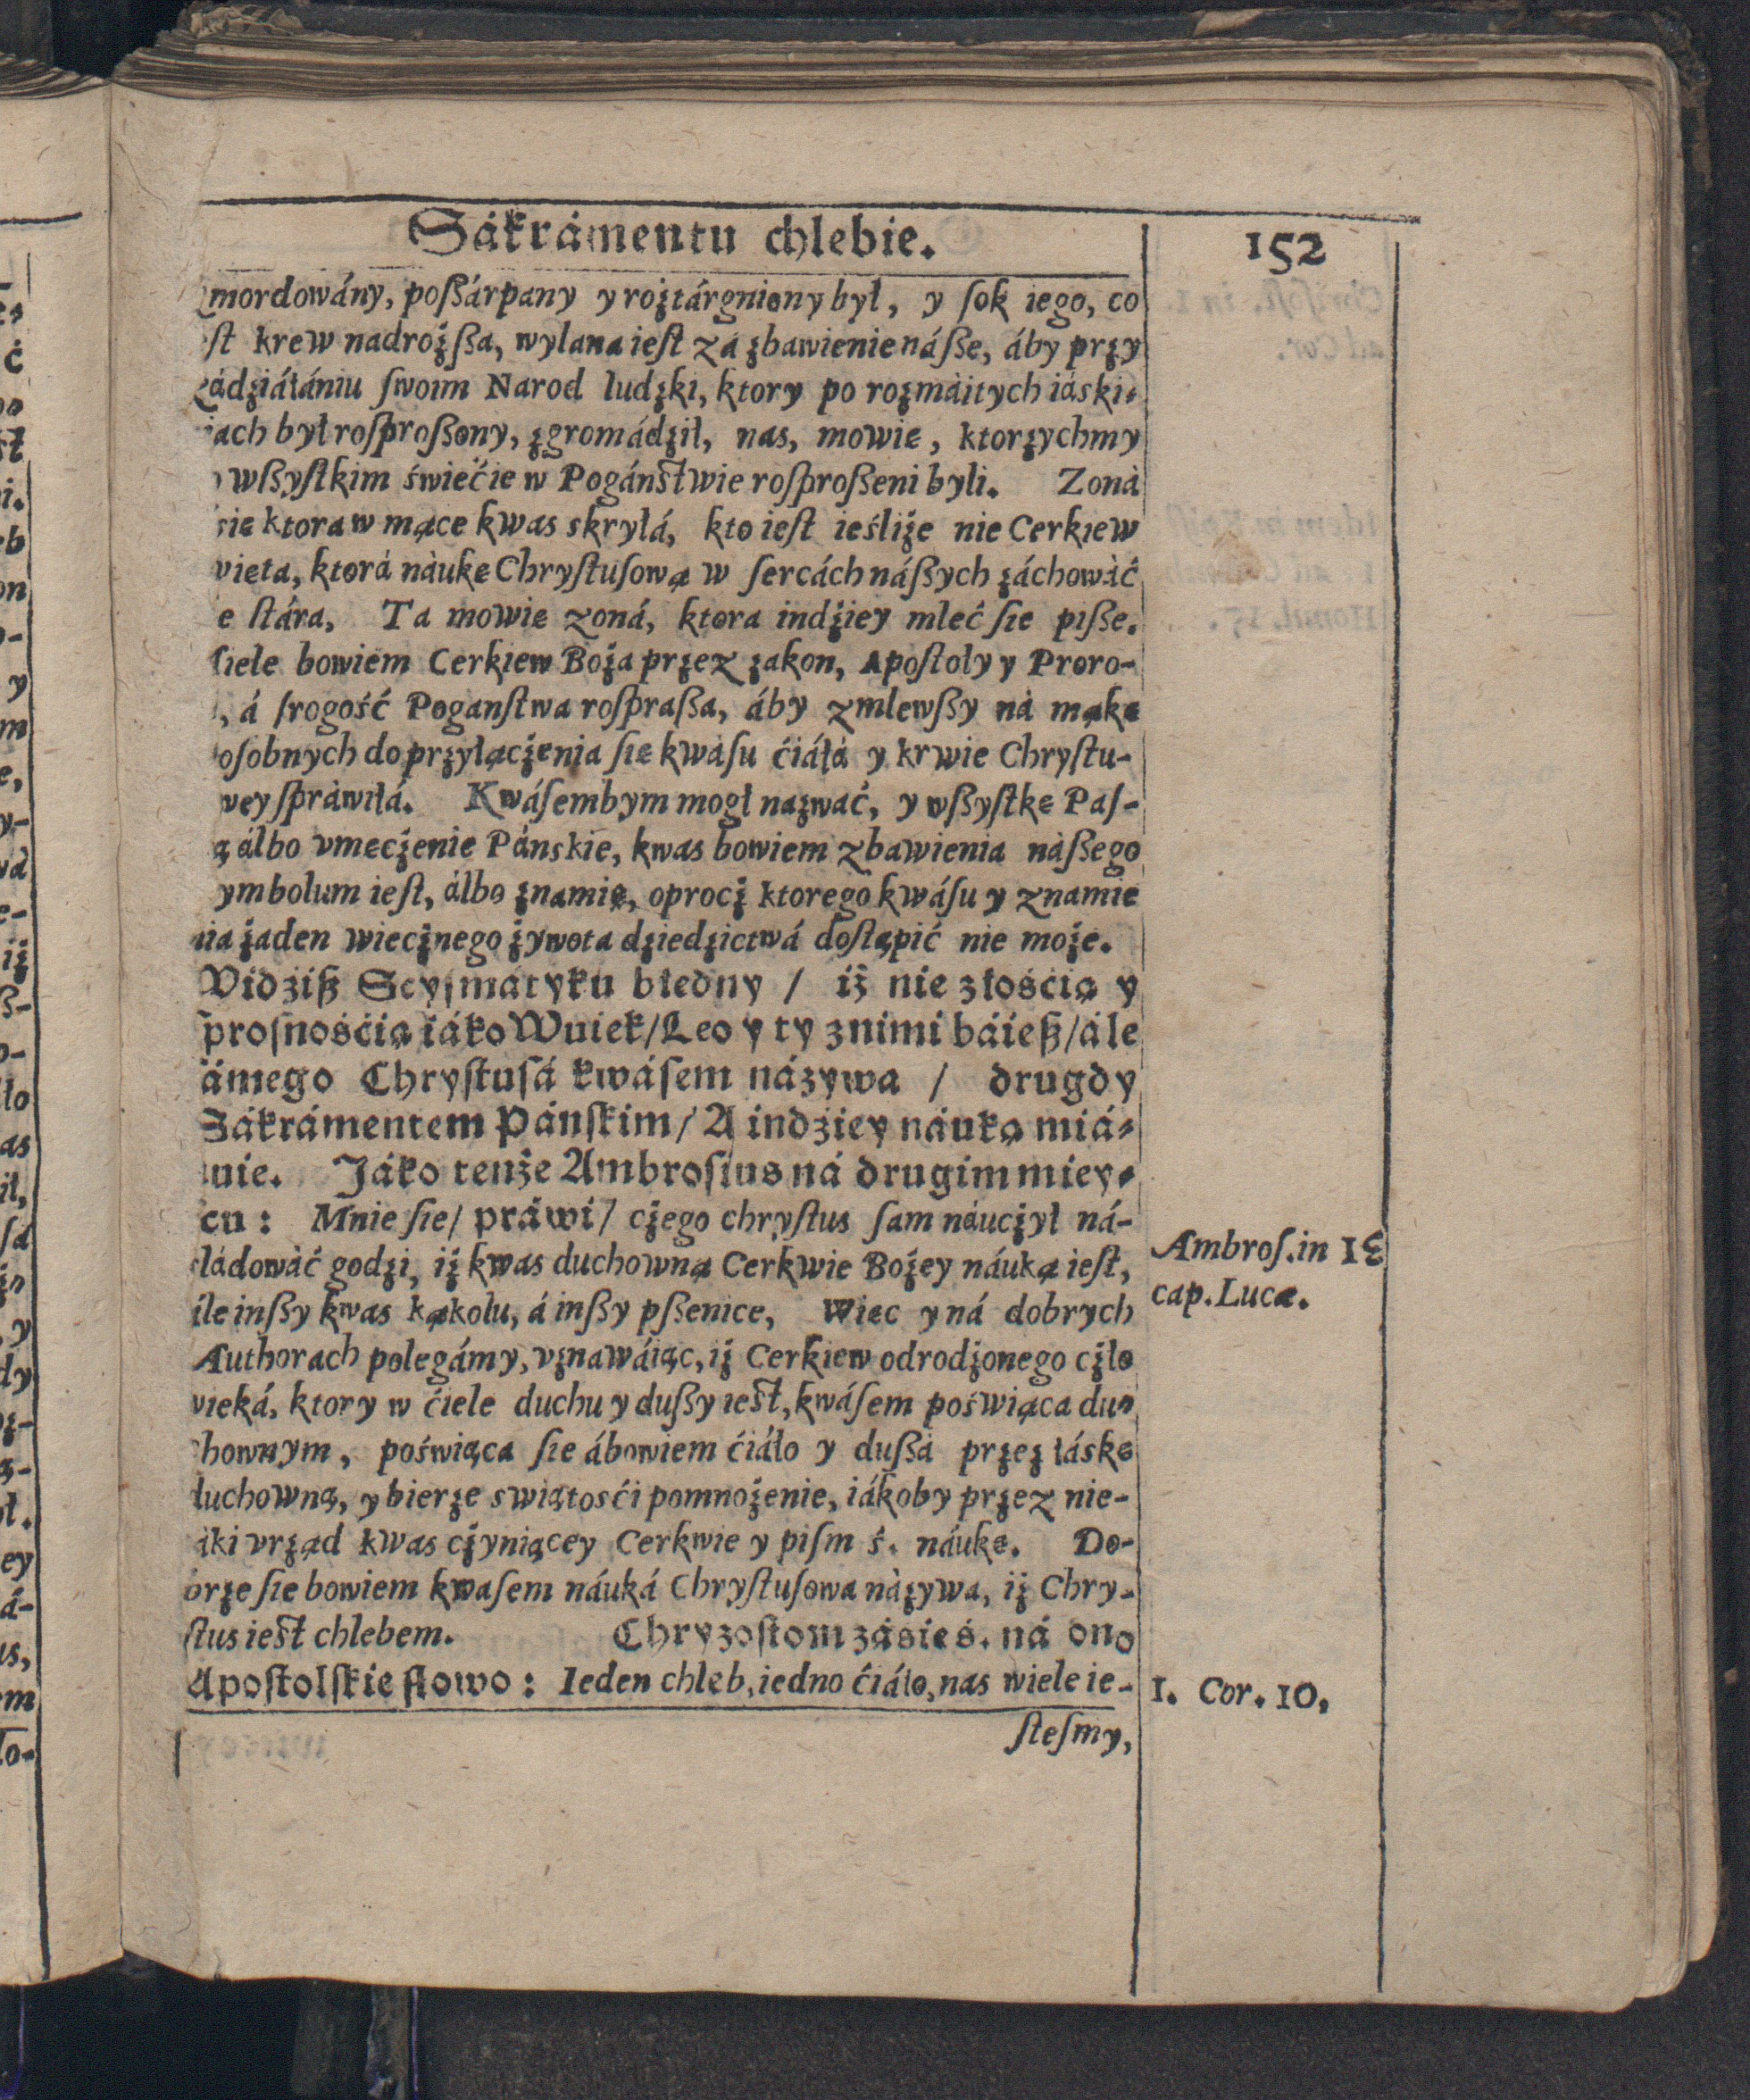 Sákrámentu chlebie.
152
zmordowány, poſſárpany y roźtárgniony był, y ſok iego, co
eſt krew nadroźſſa, wylana ieſt zá źbawienie náſſe, áby prźy
zádźiáłániu ſwoim Narod ludźki, ktory po roźmáitych iáski-
iach był roſproſſony, źgromádźił, nas, mowie, ktorźychmy
wſſyſtkim świećie w Pogánſtwie roſproſſeni byli. Zoná
sie ktora w mące kwas skryłá, kto ieſt ieśliźe nie Cerkiew
vieta, ktorá náuke Chryſtuſową w ſercách náſſych źáchowáć
e ſtára, Ta mowie zoná, ktora indźiey mleć ſie piſſe.
iele bowiem Cerkiew Boźa prźez źakon, Apoſtoly y Proro-
, á ſrogość Poganſtwa roſpraſſa, áby zmlewſſy ná mąke
oſobnych do prźyłącźenia ſie kwáſu ćiáłá y krwie Chryſtu-
wey ſpráwiłá. Kwáſembym mogł naźwáć, y wſſyſtke Paſ-
ą álbo vmecźenie Pánskie, kwas bowiem zbawienia náſſego
ymbolum ieſt, álbo źnamię, oprocź ktorego kwáſu y znamie
nia źaden wiecźnego źywota dźiedźictwá doſtąpić nie moźe.
Widziß Scyſmátyku błedny / iż nie złośćią y
proſnośćią iáko Wuiek/Leo y ty znimi báieß/ále
ámego Chryſtuſá kwáſem názywa / drugdy
Sákrámentem Pánſkim/ A indziey náuką miá-
nuie. Jáko tenże Ambroſius ná drugim miey-
cu: Mnie ſie/ práwi/ cźego chryſtus ſam náucźył ná-
ſládowáć godźi, iź kwas duchowną Cerkwie Boźey náuką ieſt,
ále inſſy kwas kąkolu, á inſſy pſſenice, Wiec y ná dobrych
Authorach polegámy, vźnawáiąc, iź Cerkiew odrodźonego cźło
vieká, ktory w ćiele duchu y duſſy ieſt, kwáſem poświąca du-
chownym, poświąca ſie ábowiem ćiáło y duſſá prźeź łáske
duchowną, y bierźe swiątośći pomnoźenie, iákoby prźez nie-
áki vrźąd kwas cźyniącey Cerkwie y piſm ś. náuke. Do-
brźe ſie bowiem kwaſem náuká Chryſtuſowa náźywa, iź Chry-
ſtus ieſt chlebem. Chryzoſtom zásie ś. ná ono
Apoſtolſkie ſłowo: Ieden chleb, iedno ćiáło, nas wiele ie-
ſteſmy,
Ambroſ. in 13
cap. Lucæ.
1. Cor. 10,